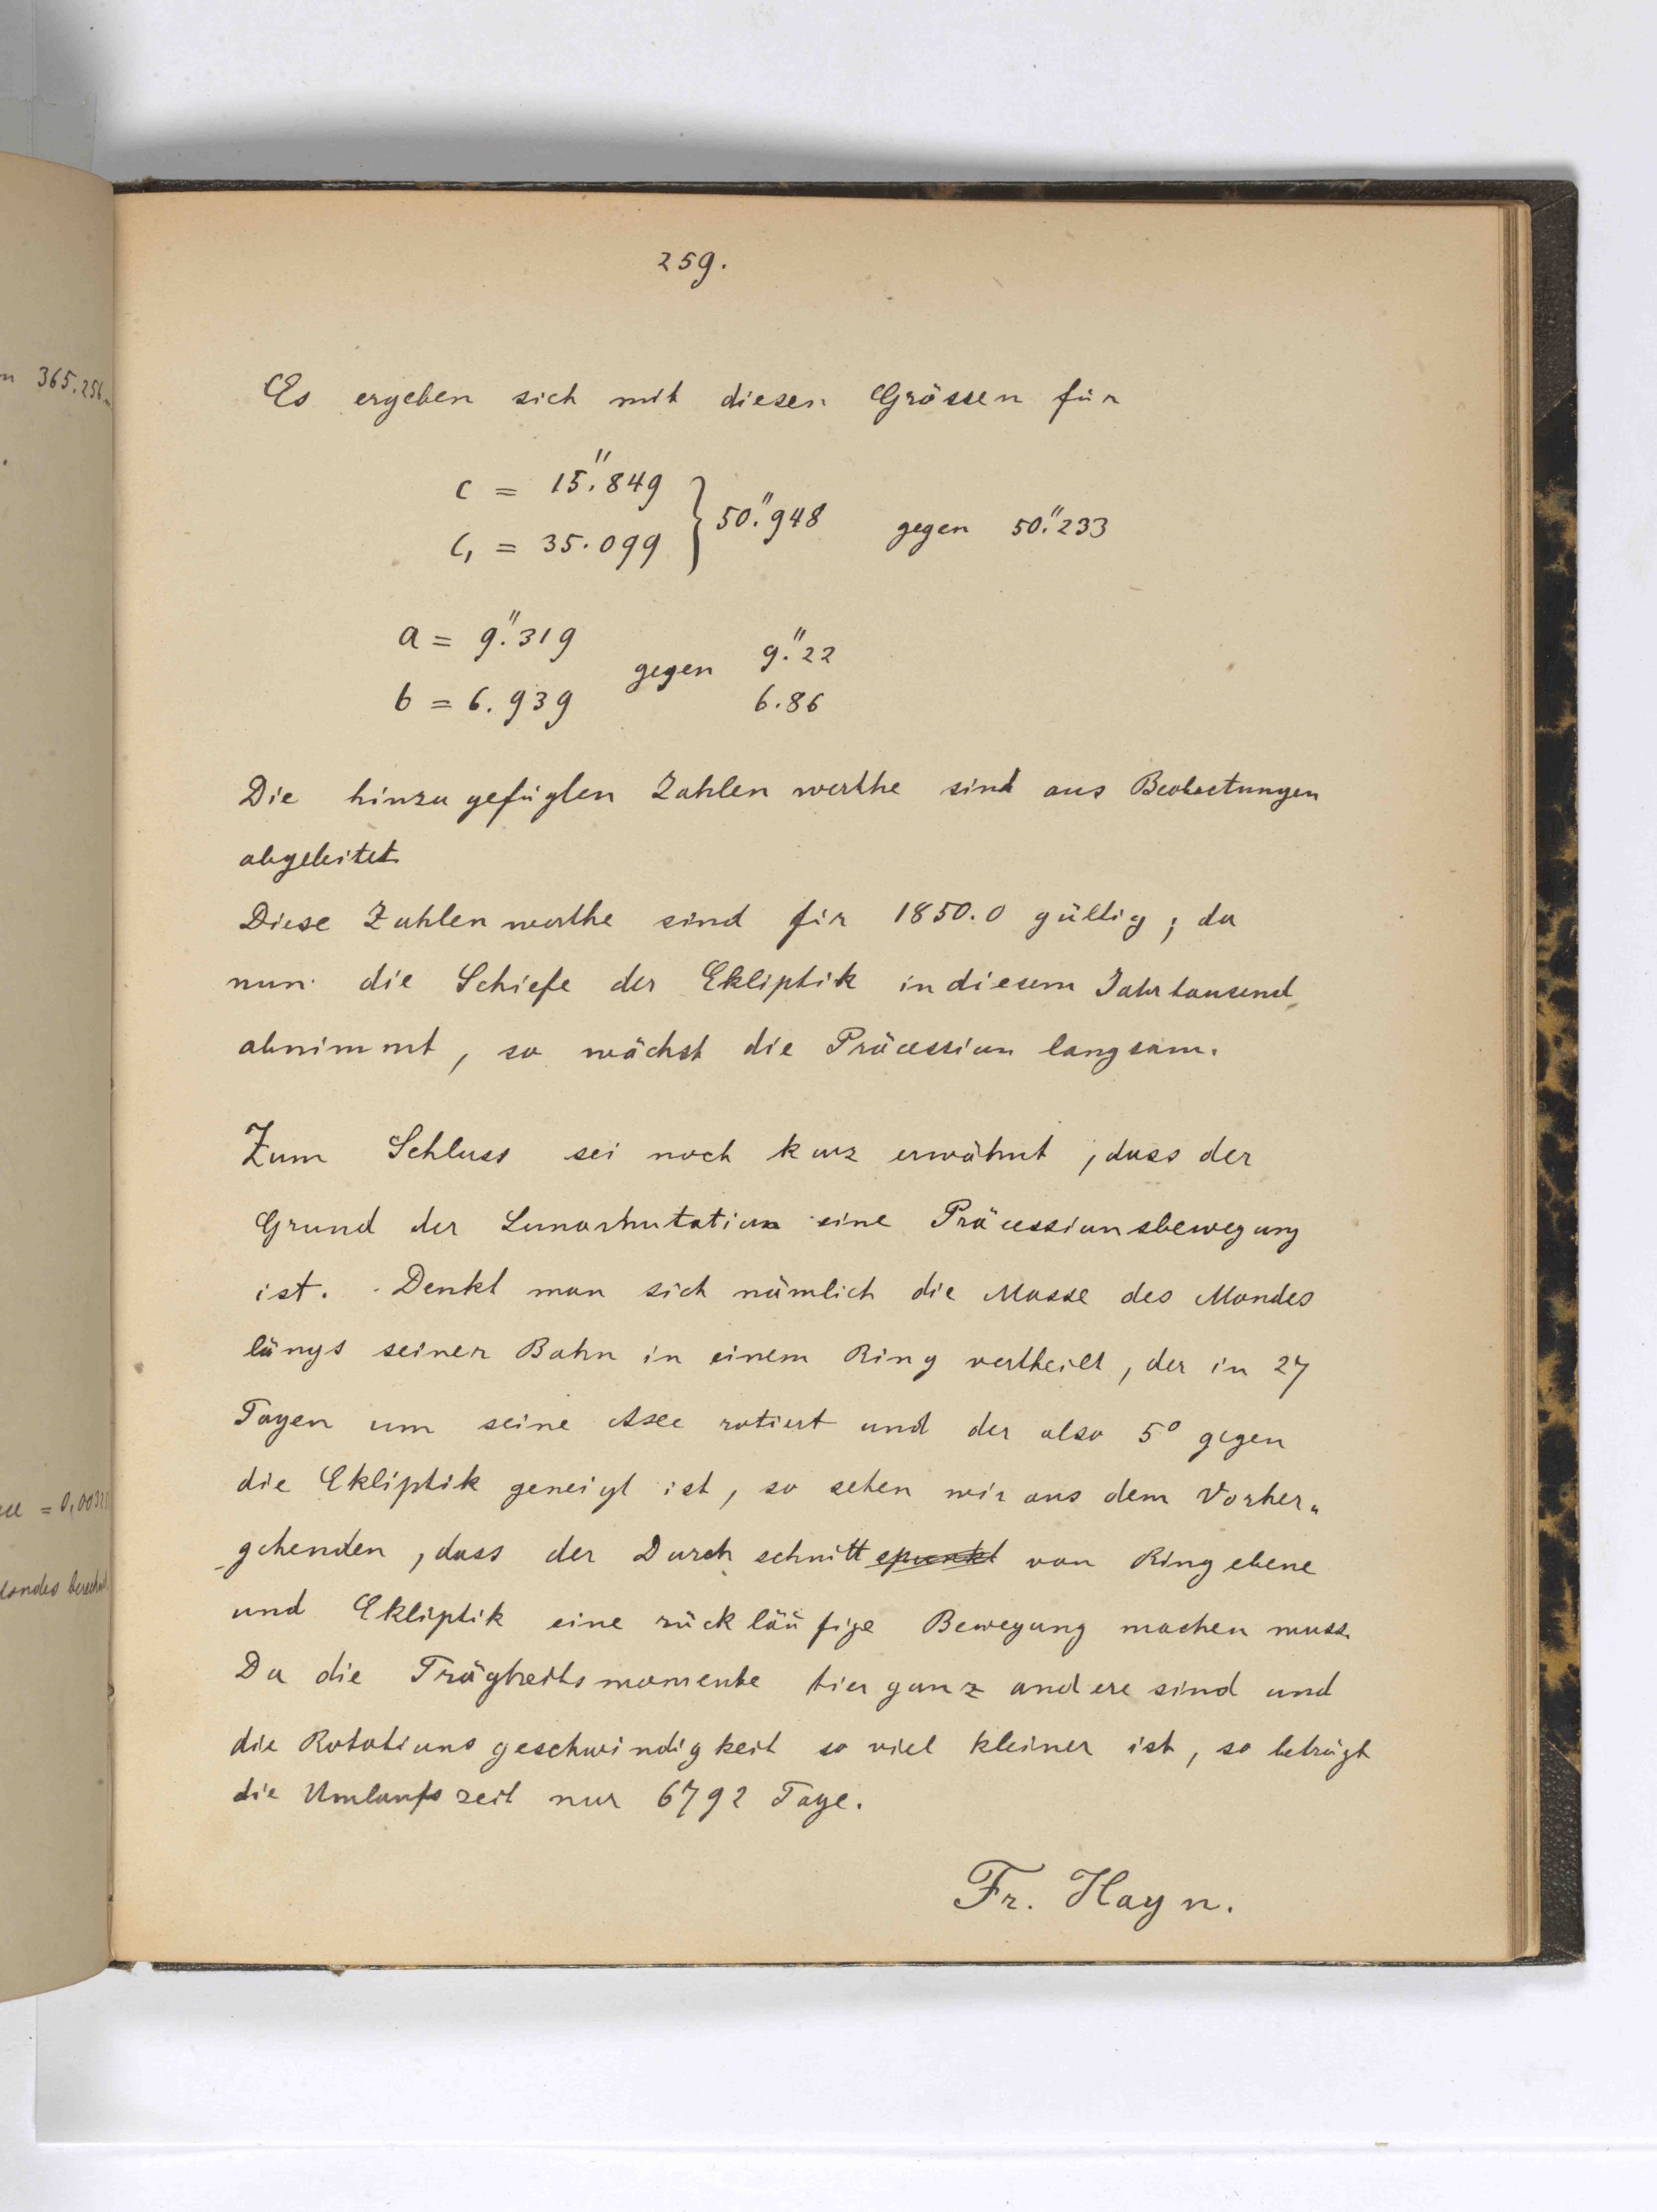 259.
Es ergeben sich mit diesen Grössen für
c = 15."849 } 50."948 gegen 50."233
c, = 35.099
a = 9."319 gegen 9."22
b = 6.939 6.86
Die hinzugefügten Zahlenwerthe sind aus Beobactungen
abgeleitet.
Diese Zahlenwerthe sind für 1850.0 gültig; da
nun die Schiefe der Ekliptik in diesem Jahrtausend
abnimmt, so wächst die Präcession langsam.
Zum Schluss sei noch kurz erwähnt, dass der
Grund der Lunarnutation eine Präcessionsbewegung
ist. Denkt man sich nämlich die Masse des Mondes
längs seiner Bahn in einem Ring vertheilt, der in 27
Tagen um seine Axe rotiert und der also 5° gegen
die Ekliptik geneigt ist, so sehen wir aus dem Vorher„
gehenden, dass der Durchschnittspunkt von Ringebene
und Ekliptik eine rückläufige Bewegung machen muss.
Da die Trägheitsmomente hier ganz andere sind und
die Rotationsgeschwindigkeit so viel kleiner ist, so beträgt
die Umlaufszeit nur 6792 Tage.
Fr. Hayn.
n 365.256
= 0,003
landes berechnet